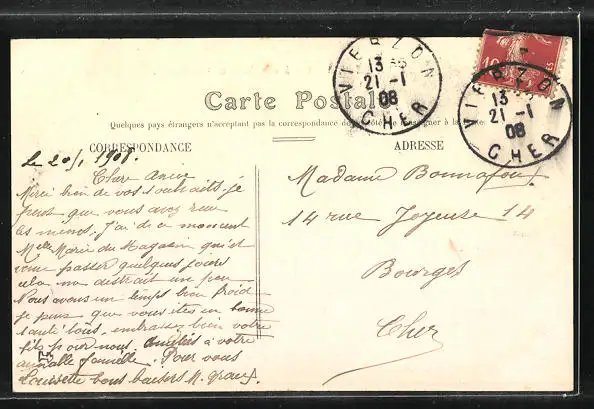 VIERZON
13
21 -1
08
CHER
10
VIERZON
13
21 -1
08
CHER
Carte Postale
Quelques pays étrangers n'acceptent pas la correspondance
CORRESPONDANCE
ADRESSE
Le 20/1 1908.
Chère Amie
Merci bien de vos souhaits je
pense que vous avez reçu
les miens. J'ai de ce moment
Melle Marie du Magasin qui est
venue passer quelques jours
cela me distrait un peu
Nous avons un temps bien froid
je pense que vous êtes en bonne
santé tous, embrassez bien votre
fils pour nous. Amitiés à votre
aimable famille. Pour vous
Louisette bons baisers M.
Madame Bonnafoux
14 rue Joyeuse 14
Bourges
Cher